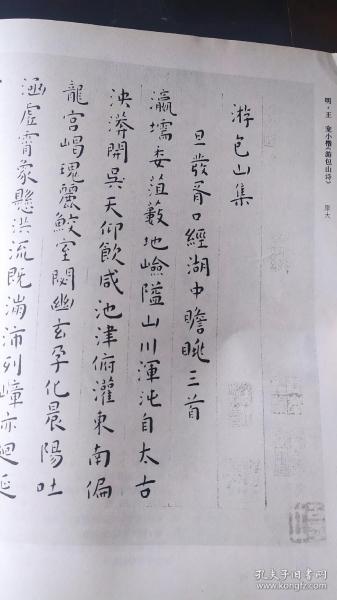 明·王 宠小楷《游包山诗》
原大
游包山集
旦發胥口經湖中瞻眺三首
瀛壖委菹藪地嶮隘山川渾沌自太古
泱漭開吳天仰飲咸池津俯灌東南偏
龍宮崵瑰麗鮫室閟幽玄孕化晨陽吐
涵虛霄象懸洪流既滿沛列嶂亦迴延
孔夫子旧书网